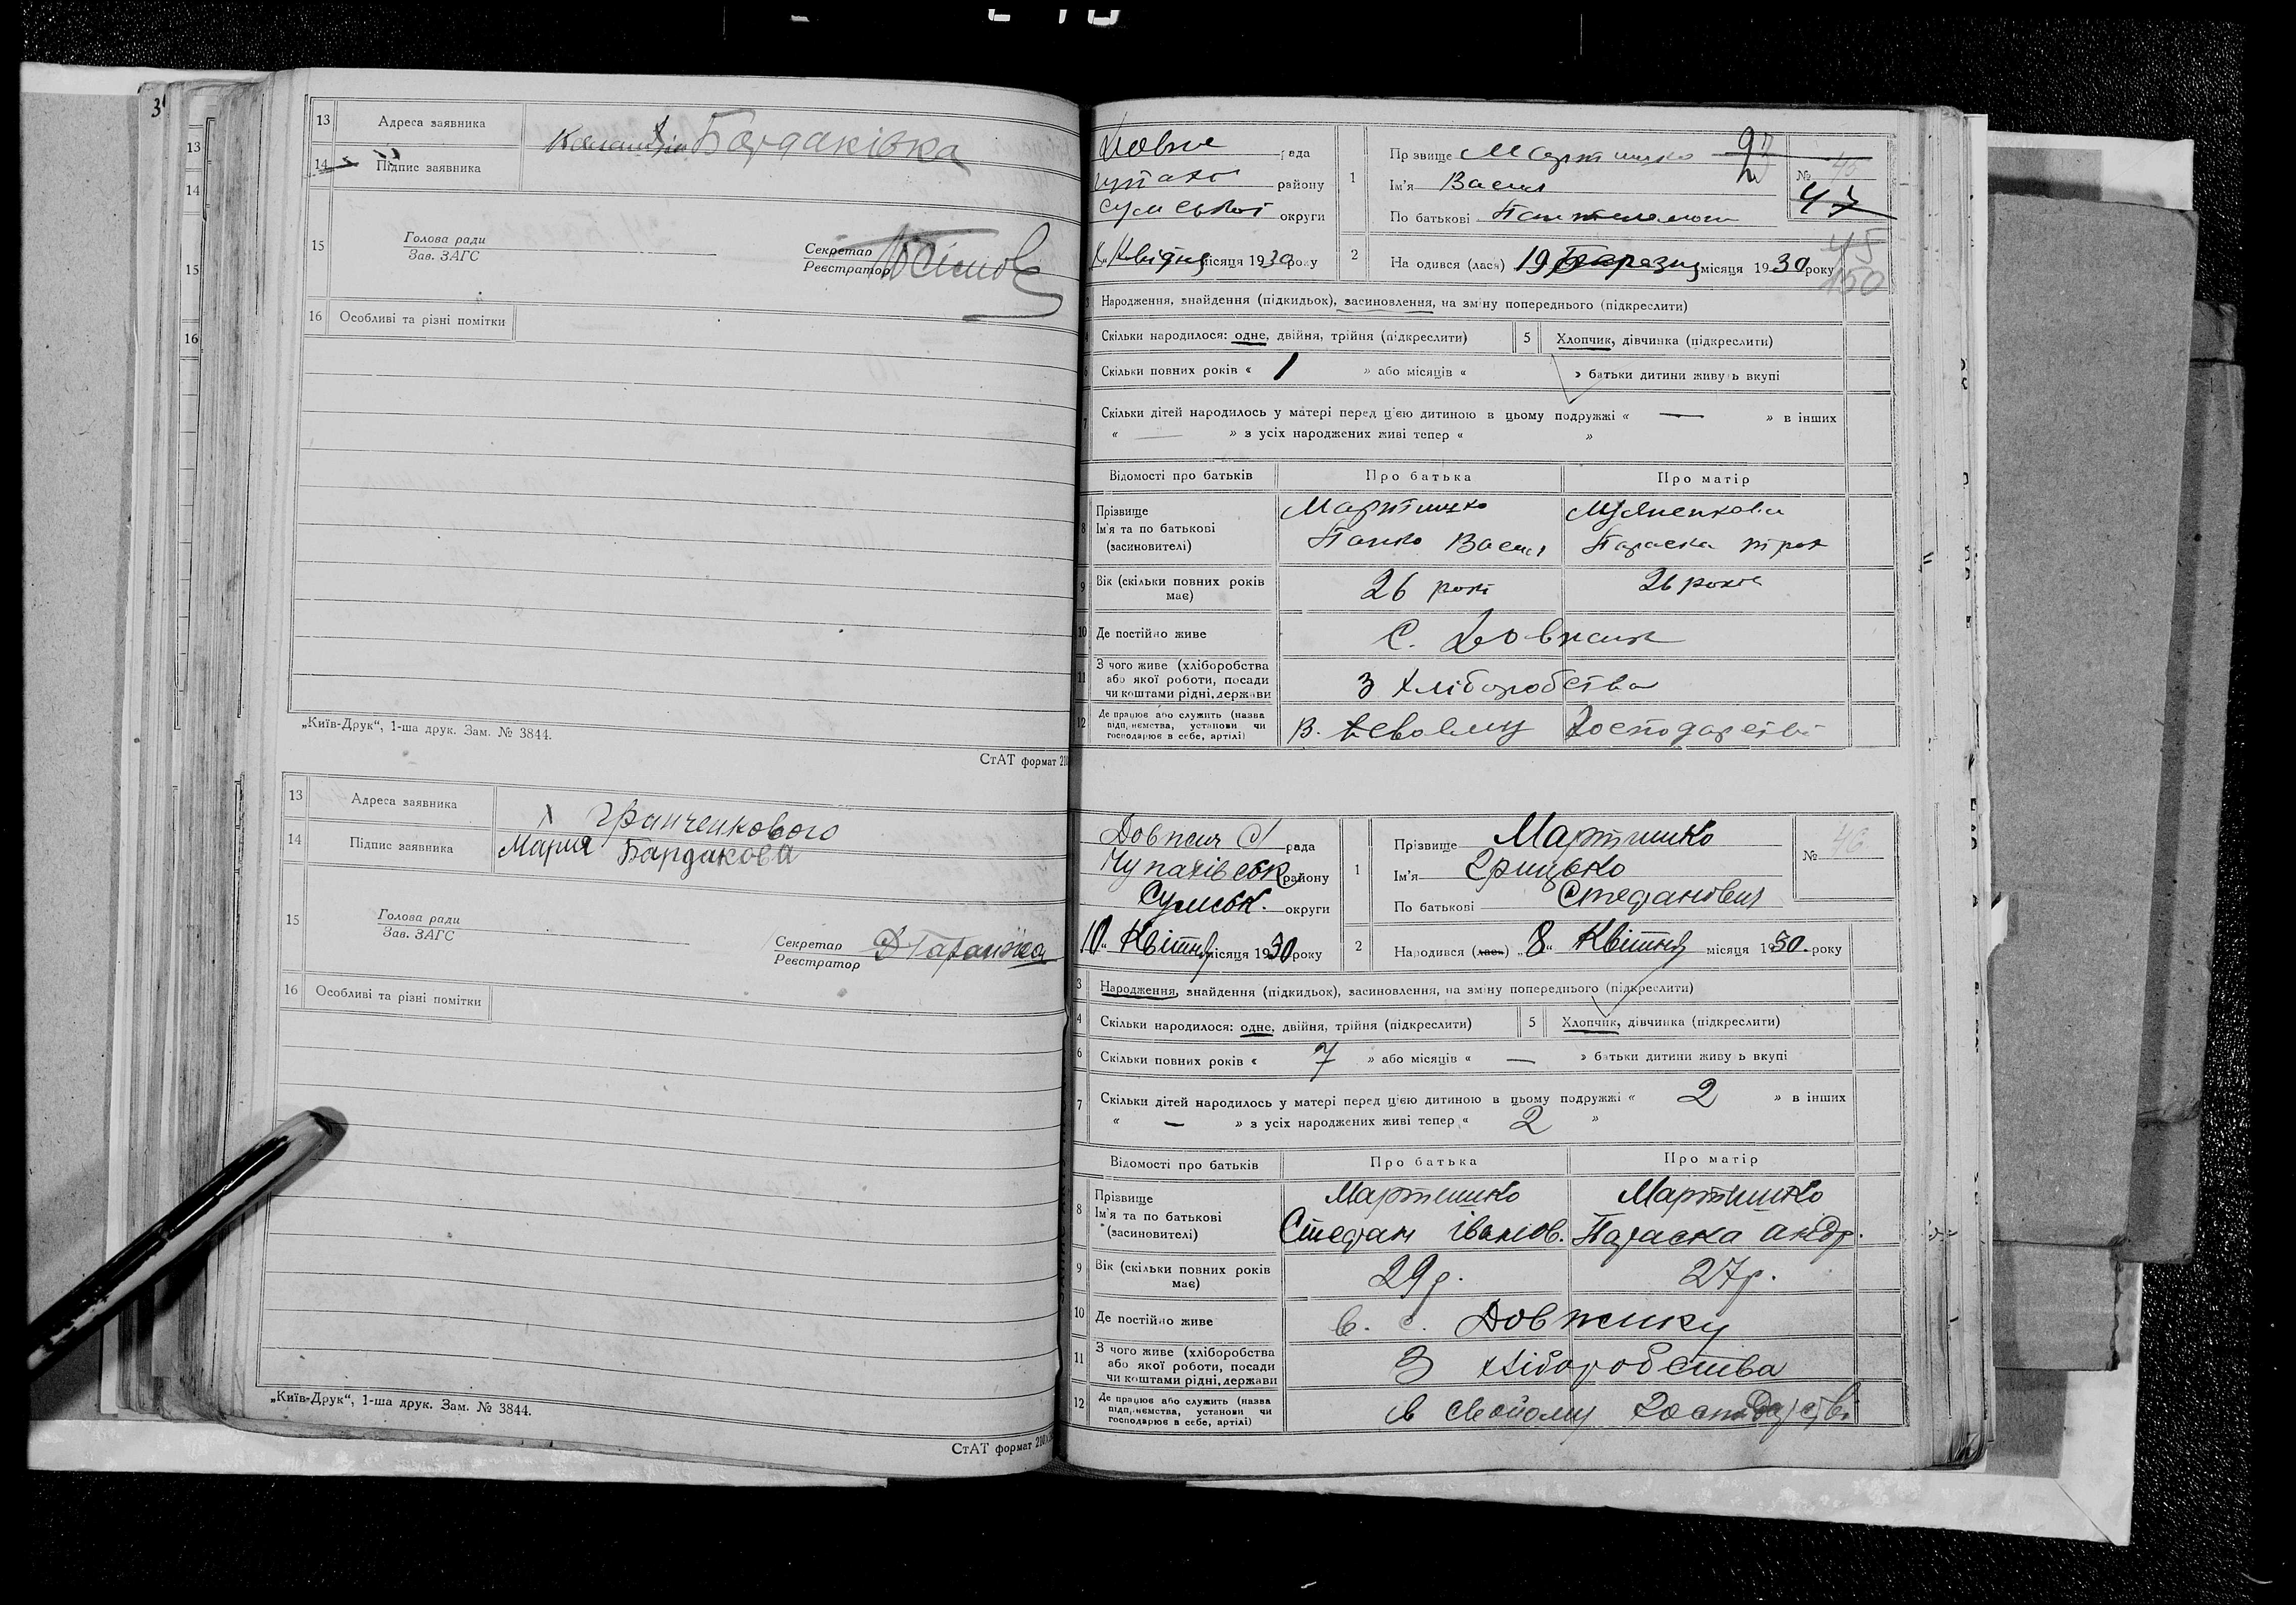 3
13
14
15
16
13 Адреса заявника
14 Підпис заявника
Бардаківка
15 Голова ради
Зав. ЗАГС
Секретар
Реєстратор
16 Особливі та різні помітки
„Київ-Друк“, 1-ша друк. Зам. № 3844.
СтАТ формат 210
13 Адреса заявника
х Гринченкового
14 Підпис заявника
Мария Бардакова
15 Голова ради
Зав. ЗАГС
Секретар
Реєстратор
16 Особливі та різні помітки
„Київ-Друк“, 1-ша друк. Зам. № 3844.
СтАТ формат 210
рада
району
Сумської округи
Квітня місяця 1930 року
1 Прізвище Мартишко
Ім'я Васил
По батькові
№ 45
47
45
150
2 Народився (лася) 19 Березня місяця 1930 року
3 Народження, знайдення (підкидьок), засиновлення, на зміну попереднього (підкреслити)
4 Скільки народилося: одне, двійня, трійня (підкреслити)
5 Хлопчик, дівчинка (підкреслити)
6 Скільки повних років « 1 » або місяців « » батьки дитини живуть вкупі
7 Скільки дітей народилось у матері перед цією дитиною в цьому подружжі « — » в інших
« — » з усіх народжених живі тепер « »
Відомості про батьків
Про батька
Про матір
8 Прізвище
Ім'я та по батькові
(засиновителі)
Мартишко
Панко Васил
Параска
9 Вік (скільки повних років має)
26 рокі
26 років
10 Де постійно живе
С. Довжик
11 З чого живе (хліборобства
або якої роботи, посади
чи коштами рідні, держави
З Хліборобства
12 Де працює або служить (назва
підприємства, установи чи
господарює в себе, артілі)
В. своєму господарстві
Довжич С/ рада
Чупахівськ району
Сумськ. округи
10 „ Квітня місяця 1930 року
1 Прізвище Мартишко
Ім'я Грицько
По батькові Степанович
№ 46
2 Народився (лась) „ 8 “ Квітня місяця 1930 року
3 Народження, знайдення (підкидьок), засиновлення, на зміну попереднього (підкреслити)
4 Скільки народилося: одне, двійня, трійня (підкреслити)
5 Хлопчик, дівчинка (підкреслити)
6 Скільки повних років « 7 » або місяців « — » батьки дитини живуть вкупі
7 Скільки дітей народилось у матері перед цією дитиною в цьому подружжі « 2 » в інших
« — » з усіх народжених живі тепер « 2 »
Відомості про батьків
Про батька
Про матір
8 Прізвище
Ім'я та по батькові
(засиновителі)
Мартишко
Степан Іванов.
Мартишко
Параска Андр.
9 Вік (скільки повних років має)
29 р.
27 р.
10 Де постійно живе
в. с. Довжику
11 З чого живе (хліборобства
або якої роботи, посади
чи коштами рідні, держави
З хліборобства
12 Де працює або служить (назва
підприємства, установи чи
господарює в себе, артілі)
в свойому господарстві